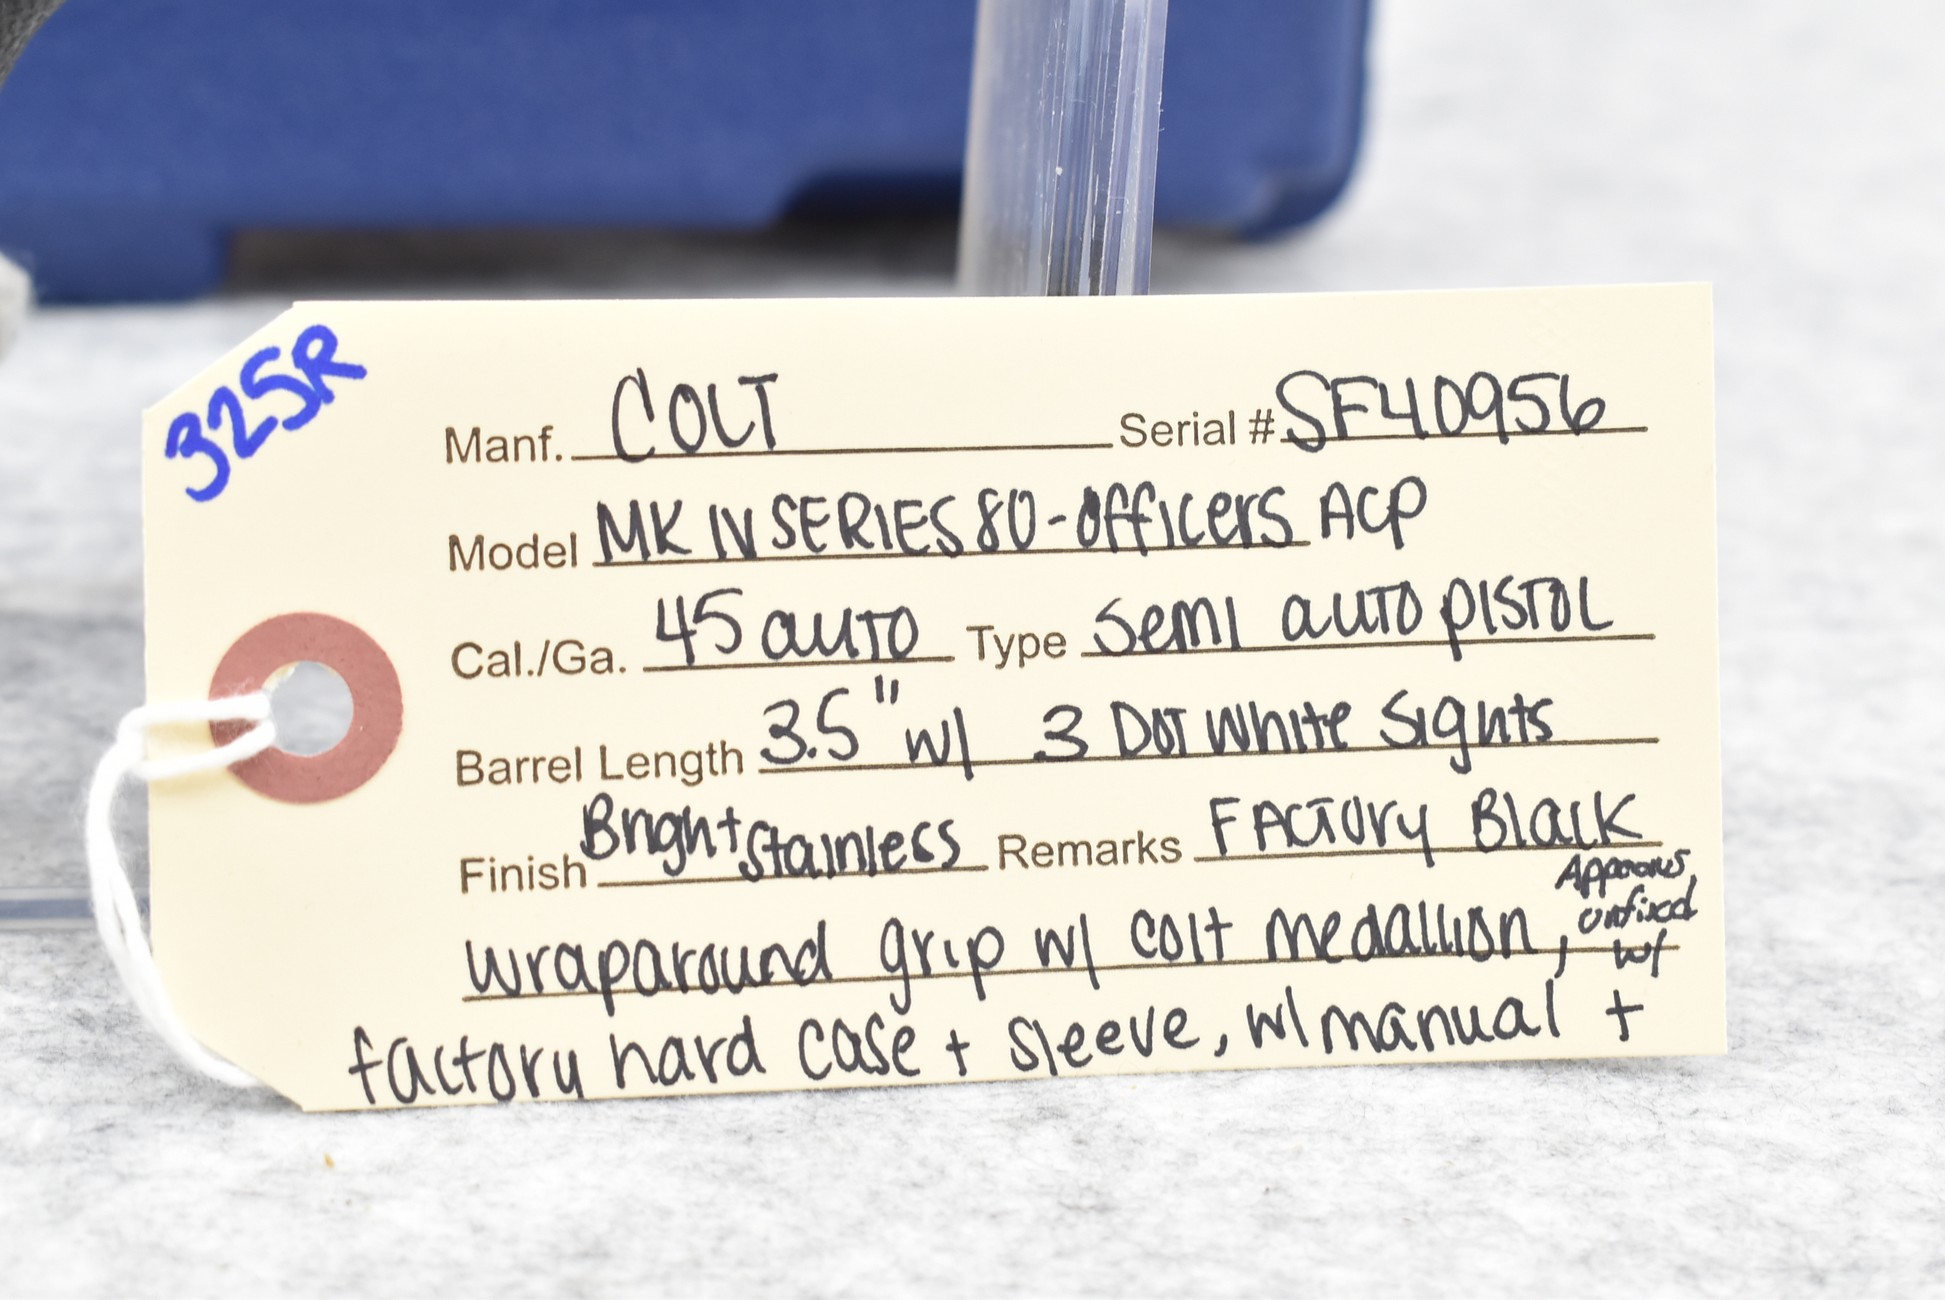 325R
Manf. COLT Serial # SF40956
Model MK IV SERIES 80 - Officers ACP
Cal./Ga. 45 auto Type Semi auto pistol
Barrel Length 3.5" w/ 3 Dot White Sights
Finish Bright Stainless Remarks Factory Black
wraparound grip w/ colt medallion, Appears unfired w/
factory hard case + sleeve, w/ manual +